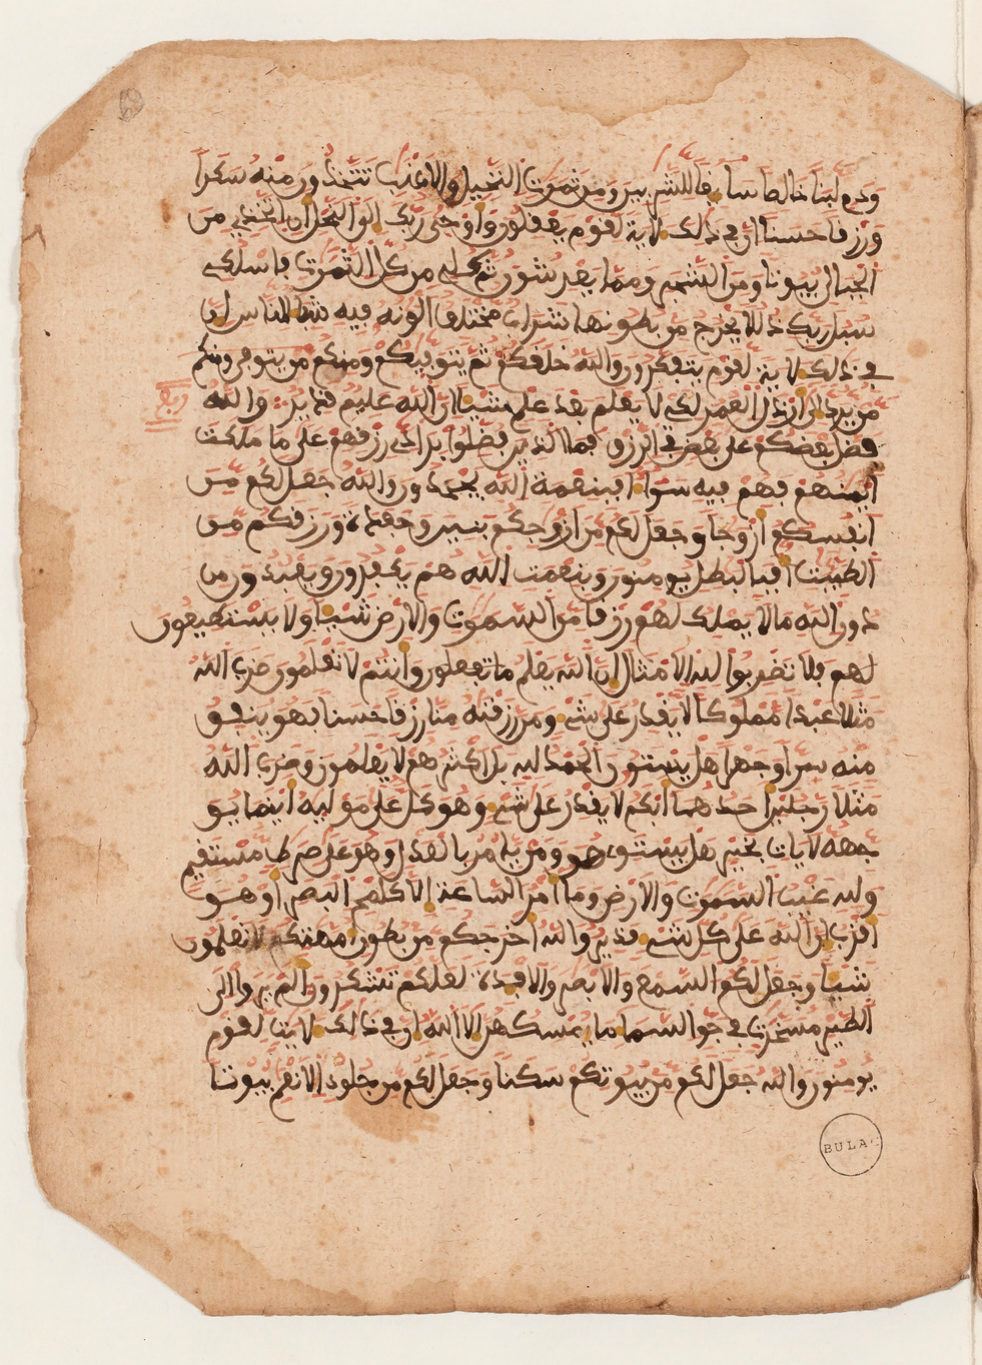 ودم لبنا خالصا سايغا للشربين ومن ثمرت النخيل والاعنب تتخذون منه سكرا
ورزفا حسنا ان في ذلك لاية لفوم يعفلون واوحى ربك الى النحل ان اتخذي من
الجبال بيوتا ومن الشجر ومما يعرشون ثم كلي من كل الثمرت فاسلكي
سبل ربك ذللا يخرج من بطونها شراب مختلف الونه فيه شفا للناس ان
في ذلك لاية لفوم يتفكرون والله خلفكم ثم يتوفيكم ومنكم من
من يرد الى ارذل العمر لكي لا يعلم بعد علم شيا ان الله عليم فدير والله
ربع
فضل بعضكم على بعض في الرزق فما الذين فضلوا برادي رزفهم على ما ملكت
ايمنهم فهم فيه سوا افبنعمة الله يجحدون والله جعل لكم من
انفسكم ازوجا وجعل لكم من ازوجكم بنين وحفدة ورزفكم من
الطيبت افبالبطل يومنون وبنعمت الله هم يكفرون ويعبدون من
دون الله ما لا يملك لهم رزفا من السموت والارض شيا ولا يستطيعون
لهم فلا تضربوا لله الامثال ان الله يعلم وانتم لا تعلمون ضرب الله
مثلا عبدا مملوكا لا يفدر على شي ومن رزفنه منا رزفا حسنا فهو ينفق
منه سرا وجهرا هل يستون الحمد لله بل اكثرهم لا يعلمون وضرب الله
مثلا رجلين احدهما ابكم لا يفدر على شي وهو كل على موليه اينما يو
جهه لا يات بخير هل يستوي هو ومن يامر بالعدل وهو على صرط مستفيم
ولله غيب السموت والارض وما امر الساعة الا كلمح البصر او هو
افرب ان الله على كل شي فدير والله اخرجكم من بطون امهتكم لا تعلمون
شيا وجعل لكم السمع والابصر والافدة لعلكم تشكرون الم يروا الى
الطير مسخرت في جو السما ما يمسكهن الا الله ان في ذلك لايت لفوم
يومنون والله جعل لكم من بيوتكم سكنا وجعل لكم من جلود الانعم بيوتا
BULAC